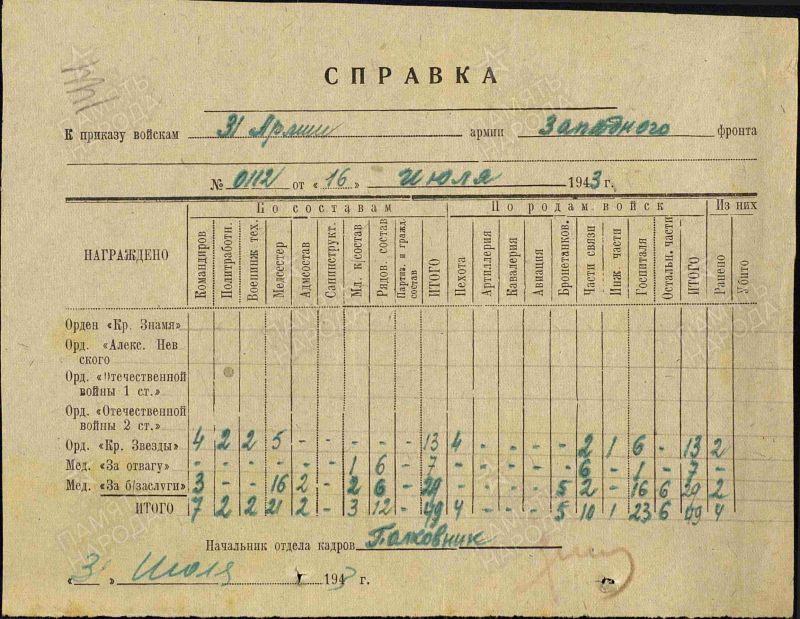 СПРАВКА
К приказу войскам 31 Армии армии Западного фронта
№ 0112 от «16» Июля 1943 г.
НАГРАЖДЕНО По составам По родам войск Из них
Командиров Политработн. Военинж тех. Медсестер Адмсостав Санинструкт. Мл. к/состав Рядов. состав Партиз. и гражд. состав ИТОГО Пехота Артиллерия Кавалерия Авиация Бронетанков. Части связи Инж части Госпиталя Остальн. части ИТОГО Ранено Убито
Орден «Кр. Знамя»
Орд. «Алекс. Нев
ского
Орд. «Отечественной
войны 1 ст.»
Орд. «Отечественной
войны 2 ст.»
Орд. «Кр. Звезды» 4 2 2 5 - - - - - 13 4 - - - - 2 1 6 - 13 2
Мед. «За отвагу» - - - - - - 1 6 - 7 - - - - - 6 - 1 - 7 -
Мед. «За б/заслуги» 3 - - 16 2 - 2 6 - 29 - - - - 5 2 - 16 6 29 2
ИТОГО 7 2 2 21 2 - 3 12 - 49 4 - - - 5 10 1 23 6 49 4
Начальник отдела кадров Полковник
«31» Июля 1943 г.
ПАМЯТЬ НАРОДА